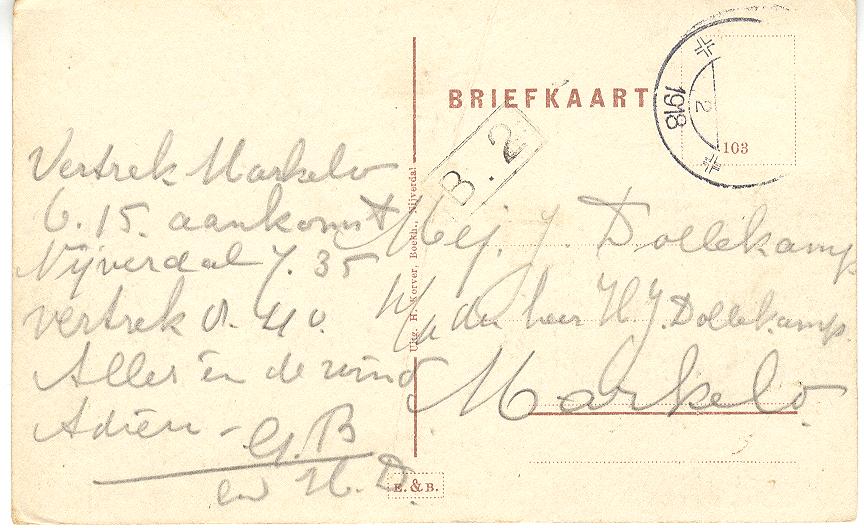 Vertrek Markelo
6.15. aankomst
Nijverdal 7.35
vertrek 8.40.
Alles in de wind
Adieu - G. B
en H. D.
Uitg. H. Korver, Boekh., Nijverdal
E. & B.
BRIEFKAART
B. 2
1918
2
103
Mej. J. Dollekamp
p/a den heer H. J. Dollekamp.
Markelo.